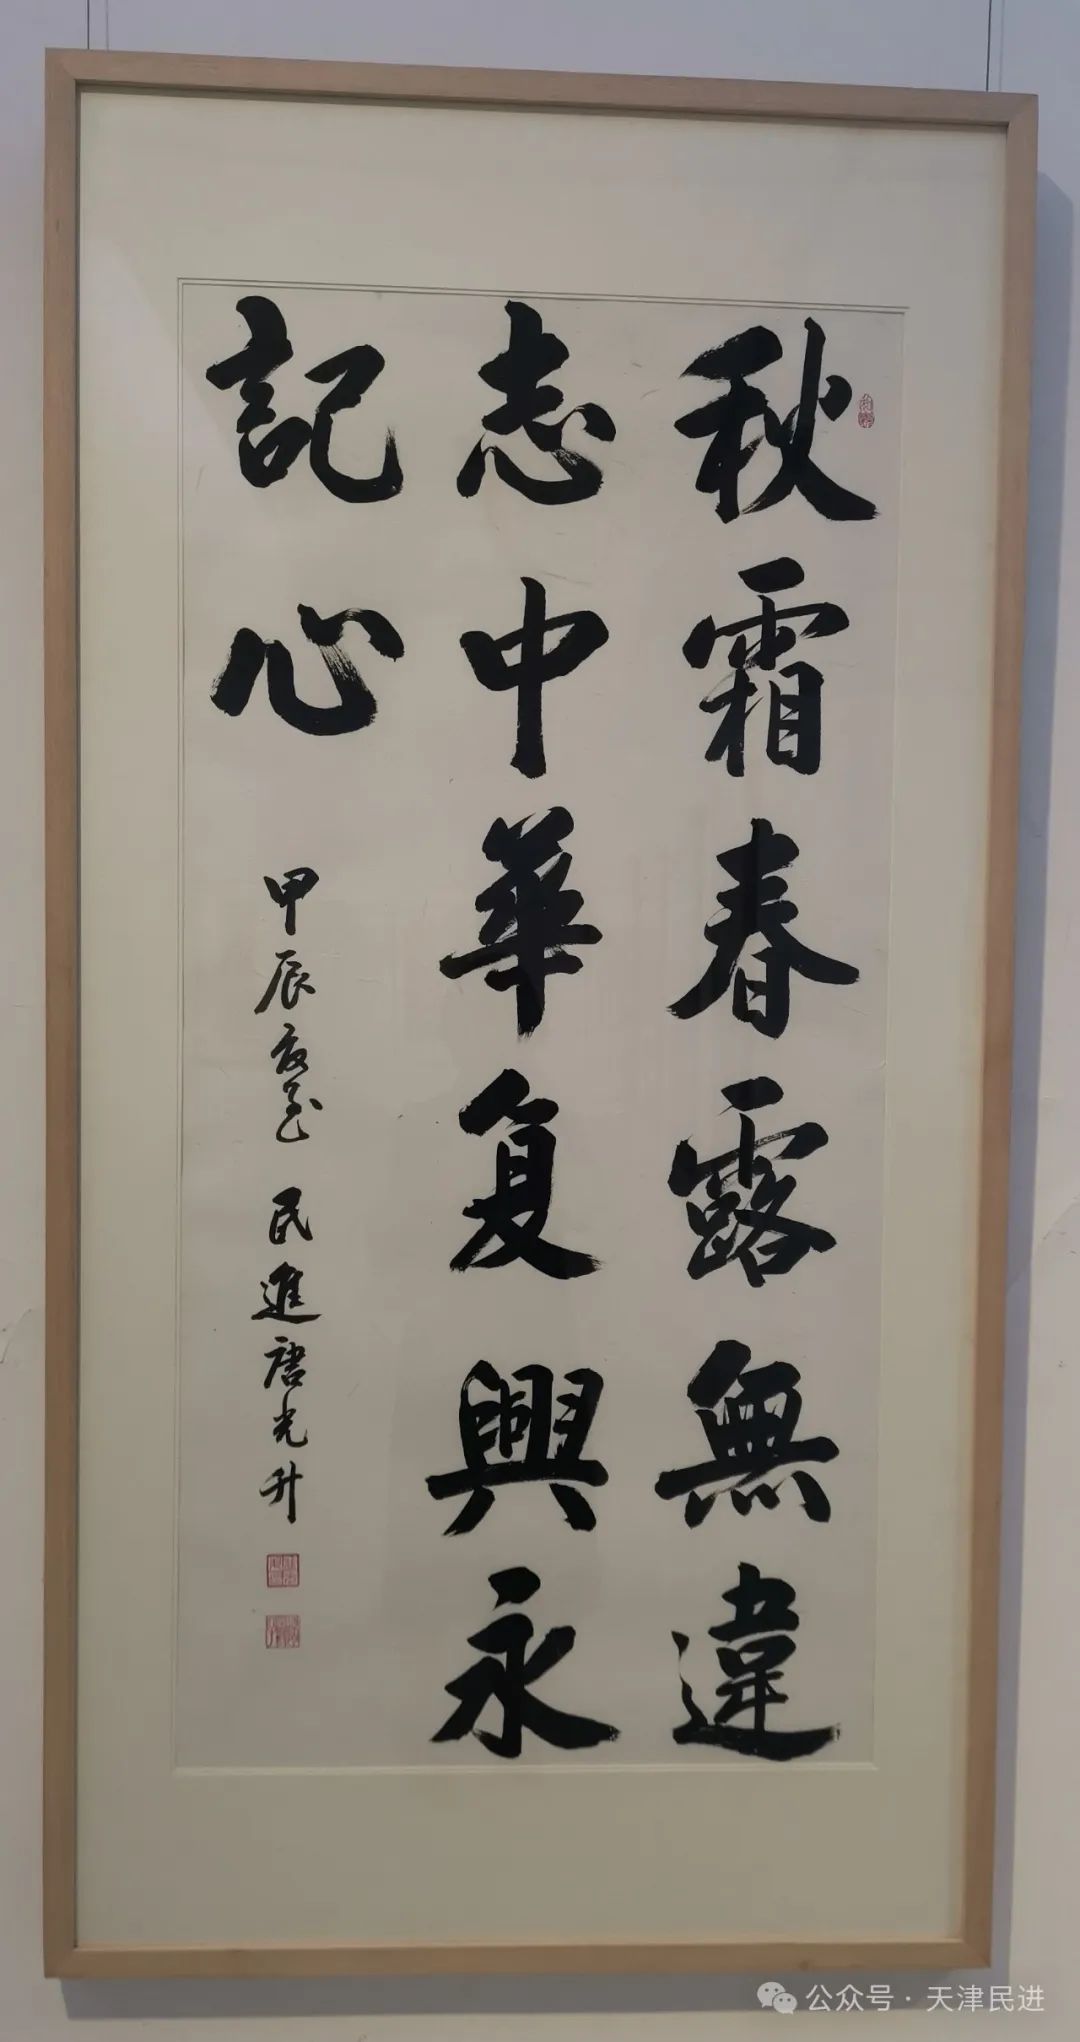 秋霜春露無違
志中華复興永
記心
甲辰夏至 民進唐光升
公众号·天津民进